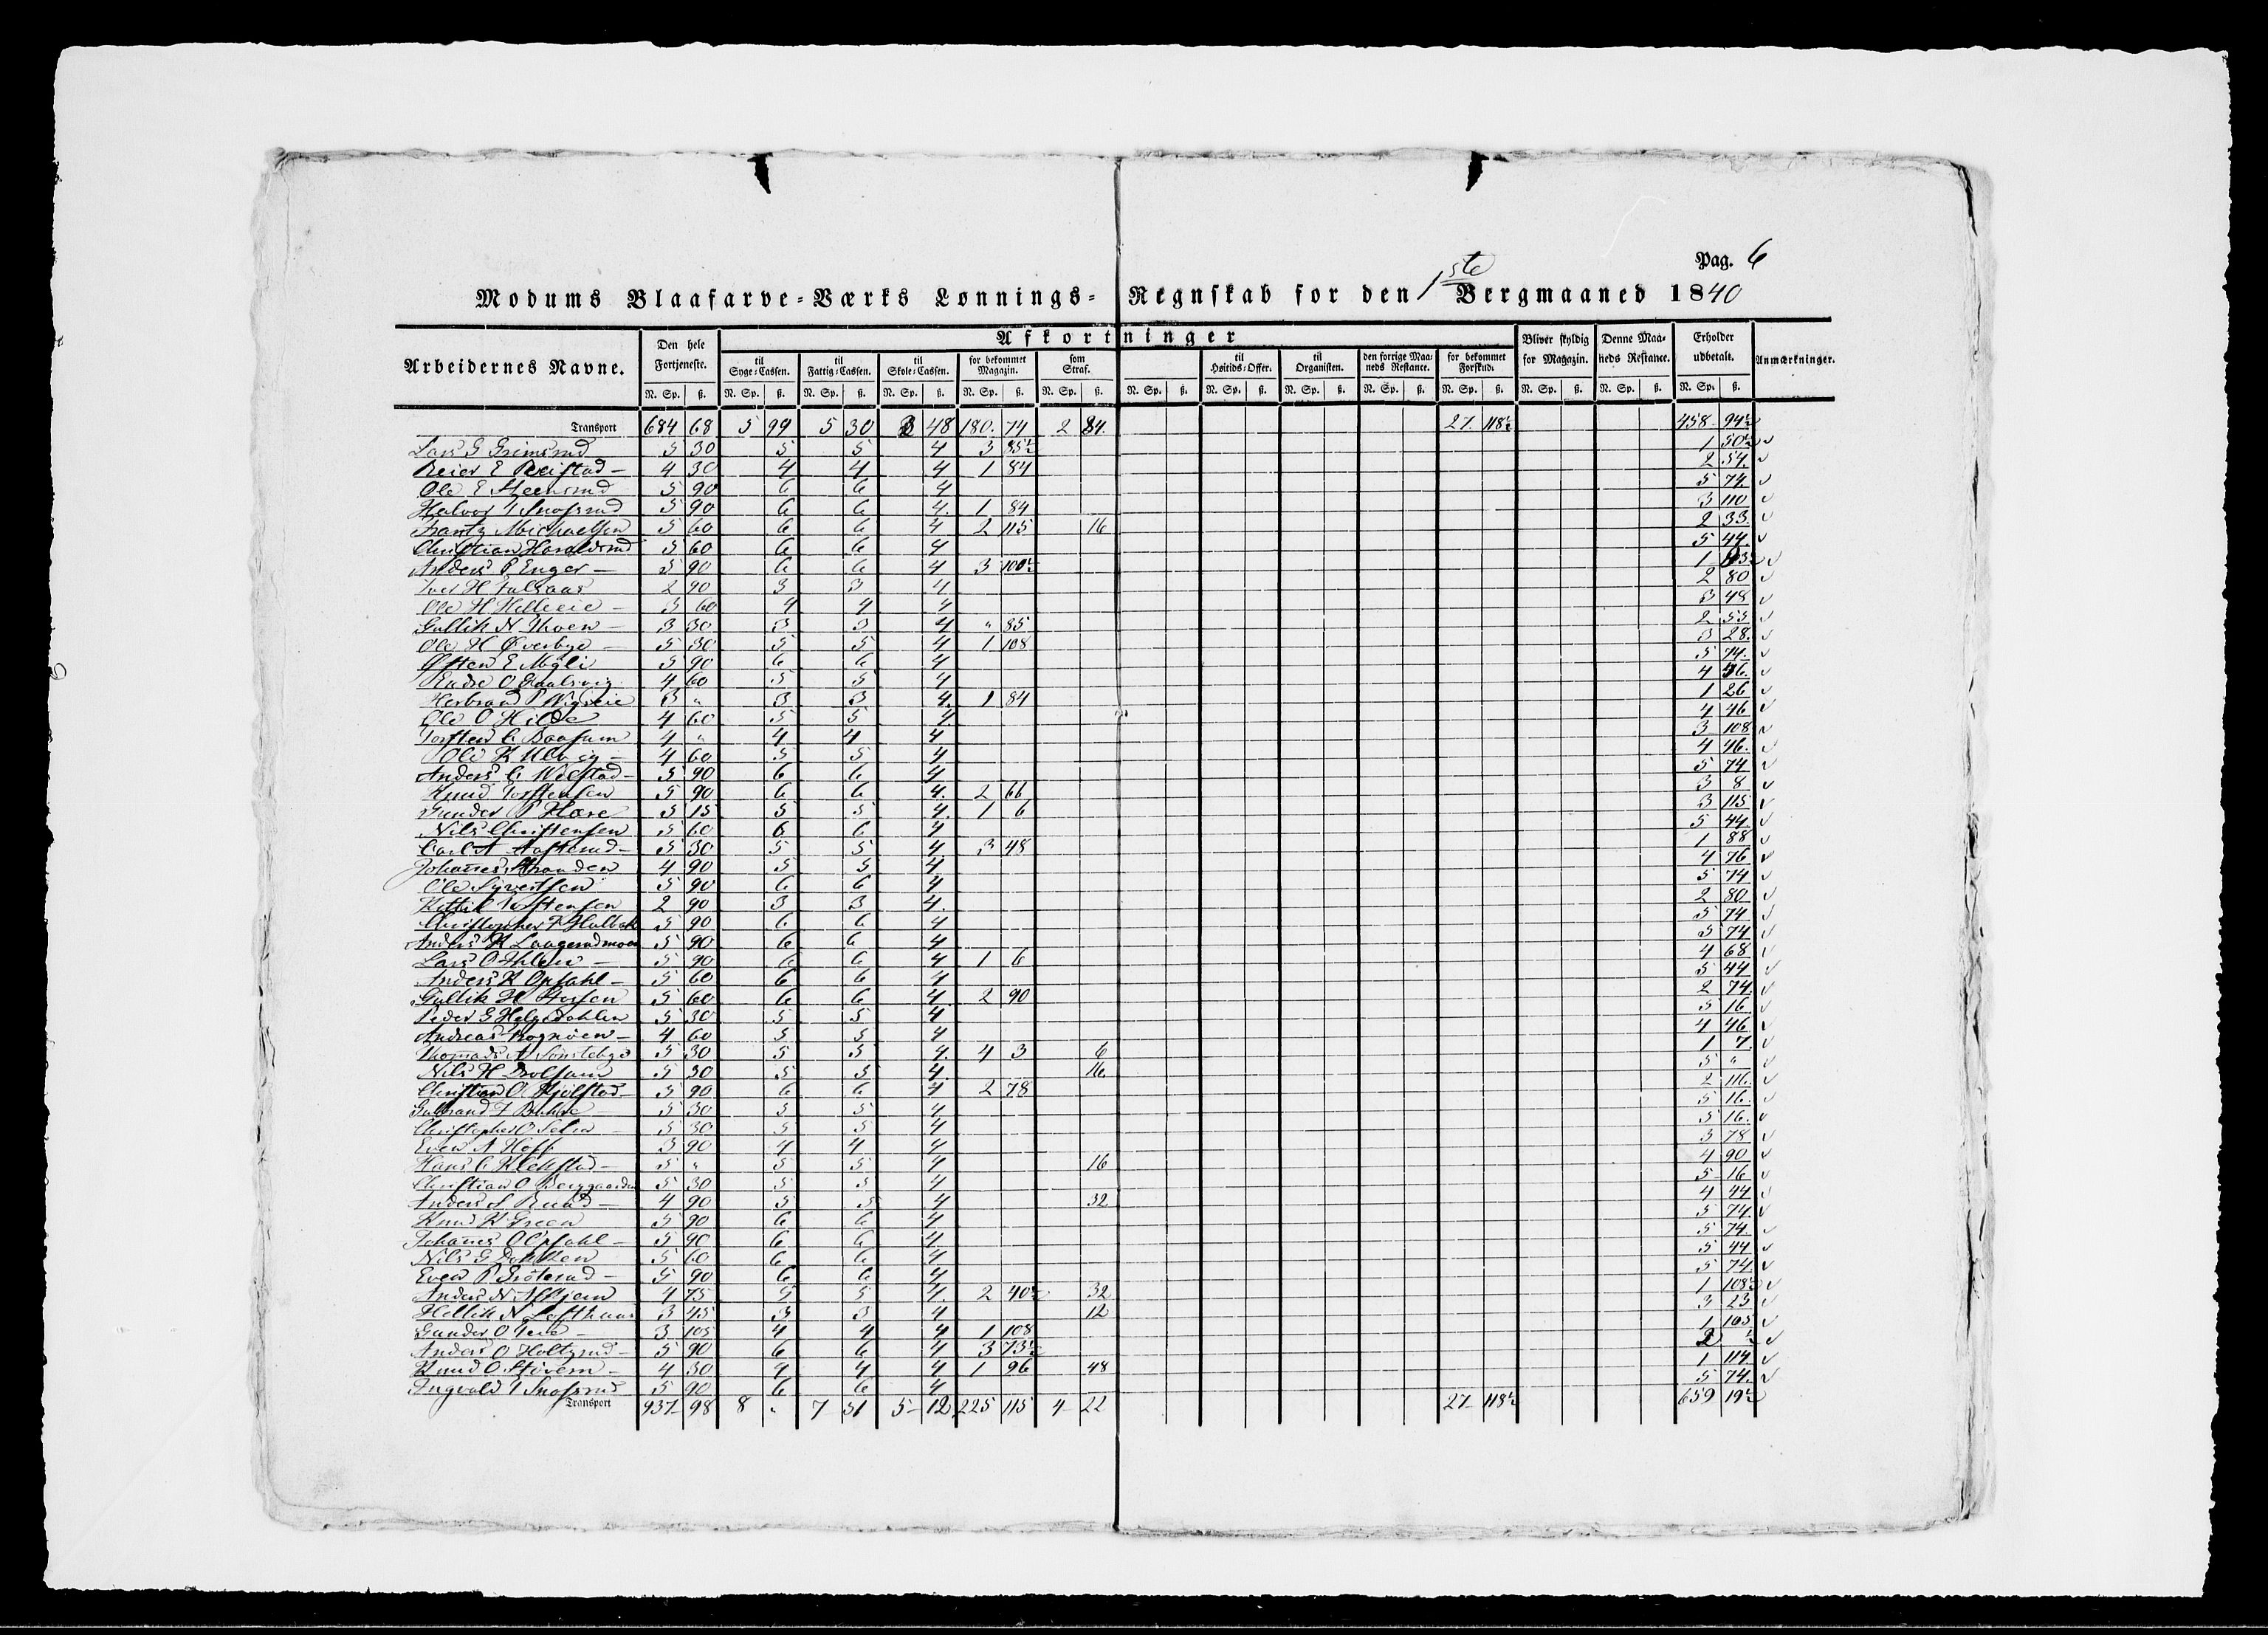 Pag. 6
Modums Blaafarve-Værks Lønnings-Regnskab for den 1ste Bergmaaned 1840
Arbeidernes Navne. Den hele Fortjeneste. Afkortninger Bliver skyldig for Magazin. Denne Maaneds Restance. Erholder udbetalt. Anmærkninger.
til Syge-Cassen. til Fattig-Cassen. til Skole-Cassen. for bekommet Magazin. som Straf. til Høitids-Offer. til Organisten. den forrige Maaneds Restance. for bekommet Forskud.
N. Sp. ß. N. Sp. ß. N. Sp. ß. N. Sp. ß. N. Sp. ß. N. Sp. ß. N. Sp. ß. N. Sp. ß. N. Sp. ß. N. Sp. ß. N. Sp. ß. N. Sp. ß. N. Sp. ß. N. Sp. ß.
Transport 684 68 5 99 5 30 3 48 180. 74 2 84. 27 118½ 458 94½
Lars G Grimsrud 5 30 5 5 4 3 85½ 1 50½
Reier E 4 30 4 4 4 1 84 2 54.
Ole E Steensrud 5 90 6 6 4 5 74.
Halvor T Snofsrud 5 90 6 6 4. 1 84 3 110
Frantz Michaelsen 5 60 6 6 4 2 115 16 2 33.
Christian Haraldsrud 5 60 6 6 4 5 44.
Anders P Enger 5 90 6 6 4 3 100½ 1
Iver H 2 90 3 3 4 2 80
Ole H Helleeie 3 60 4 4 4 3 48
Gullik N Moen 3 30 3 3 4 " 85 2 55
Ole H Øverbye 5 30 5 5 4 1 108 3 28.
Østen E Møli 5 90 6 6 4 5 74.
Endre O 4 60 5 5 4 4 46.
Herbrand P 3 " 3 3 4. 1 84 1 26
Ole O Hilde 4 60 5 5 4 4 46
Torsten C Baasum 4 " 4 4 4 3 108
Ole K Ulvig 4 60 5 5 4 4 46.
Anders C 5 90 6 6 4 5 74
Knud Torstensen 5 90 6 6 4. 2 66 3 8
Gunder P Hære 5 15 5 5 4. 1 6 3 115
Nils Christensen 5 60 6 6 4 5 44.
Carl A 5 30 5 5 4 3 48 1 88
Johannes Stranden 4 90 5 5 4 4 76
Ole Syvertsen 5 90 6 6 4 5 74
Kittil Torstensen 2 90 3 3 4. 2 80
Christopher F 5 90 6 6 4 5 74
Anders K Laugerudmoen 5 90 6 6 4 5 74
Lars O Ihlen 5 90 6 6 4 1 6 4 68
Anders K Opsahl 5 60 6 6 4 5 44
Gullik H 5 60 6 6 4. 2 90 2 74.
Peder G Helgedahlen 5 30 5 5 4 5 16
Andreas 4 60 5 5 4 4 46
Thomas A Sønstebye 5 30 5 5 4. 4 3 6 1 7.
Nils H Drolsum 5 30 5 5 4 16 5 "
Christian O Kjølstad 5 90 6 6 4 2 78 2 116.
Gulbrand T 5 30 5 5 4 5 16.
Christopher O 5 30 5 5 4 5 16.
Even A Hoff 3 90 4 4 4 3 78
Hans C Klekstad 5 " 5 5 4 16 4 90
Christian O Berggaarden 5 30 5 5 4 5 16
Anders S Ruud 4 90 5 5 4 32 4 44
Knud K Green 5 90 6 6 4 5 74.
Johannes O Opsahl 5 90 6 6 4. 5 74.
Nils G 5 60 6 6 4 5 44
Even P 5 90 6 6 4 5 74.
Anders N 4 75 5 5 4. 2 40½ 32 1 108½
Hellik N Lofthuus 3 45 3 3 4 12 3 23
Gunder O 3 105 4 4 4 1 108 1 105
Anders O Holtzrud 5 90 6 6 4 3 73½ 2 ½
Knud O Skivern 4 30 4 4 4 1 96 48 1 114
Ingvald T Snofsrud 5 90 6 6 4 5 74.
Transport 937 98 8 " 7 51 5 12 225 115 4 22 27 118½ 659 19½